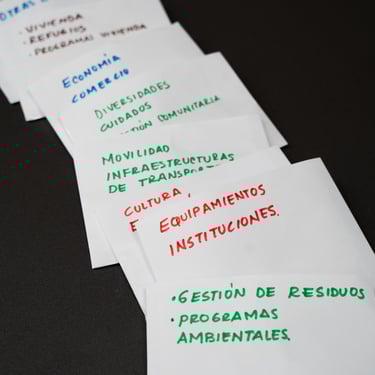 OTRAS
• VIVIENDA
• REFUGIOS
• PROGRAMAS VIVIENDA
ECONOMÍA
COMERCIO
DIVERSIDADES
CUIDADOS
GESTIÓN COMUNITARIA
MOVILIDAD
INFRAESTRUCTURAS
DE TRANSPORTE
CULTURA,
E
EQUIPAMIENTOS
INSTITUCIONES.
• GESTIÓN DE RESIDUOS
• PROGRAMAS
AMBIENTALES.